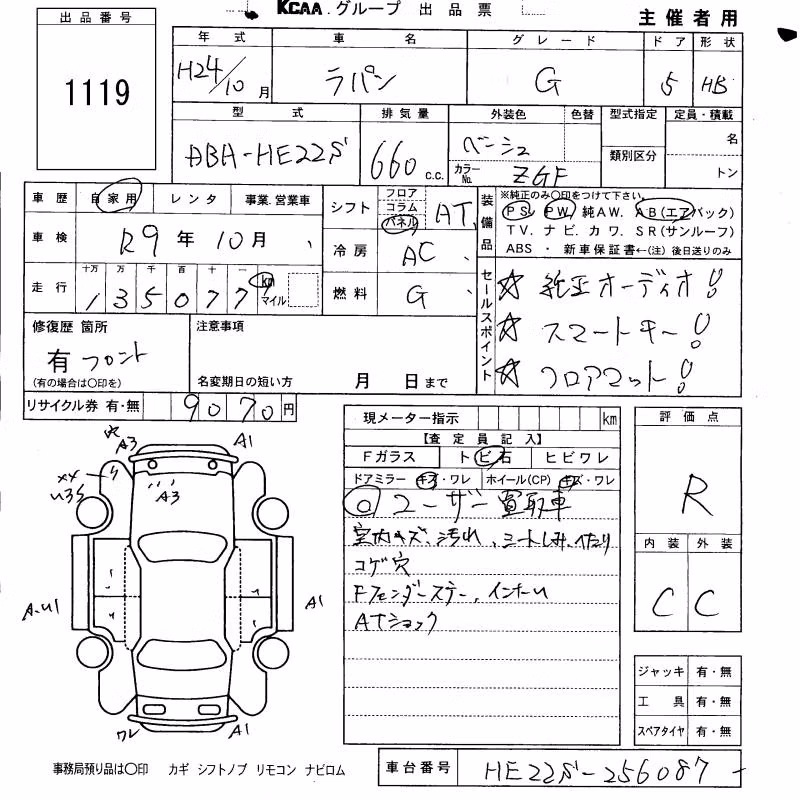 KCAA.グループ 出品票
主催者用
出品番号
1119
年式 車名 グレード ドア 形状
H24/10月 ラパン G 5 HB
型式 排気量 外装色 色替 型式指定 定員・積載
ABA-HE22S 660 c.c. ベージュ 名
カラーNo. ZGF 類別区分 トン
車歴 自家用 レンタ 事業.営業車
車検 R9年10月
走行 十万 万 千 百 十 一
135077 km マイル
シフト フロア コラム パネル AT
冷房 AC
燃料 G
装備品 ※純正のみ〇印をつけて下さい。
PS. PW. 純AW. AB(エアバック)
TV. ナビ. カワ. SR(サンルーフ)
ABS ・ 新車保証書←(注) 後日送りのみ
セールスポイント
☆ 純正オーディオ!
☆ スマートキー!
☆ フロアマット!
修復歴 箇所
有 フロント
(有の場合は〇印を)
注意事項
名変期日の短い方 月 日まで
リサイクル券 有・無 9070円
現メーター指示 km
【査定員記入】
Fガラス トビ石 ヒビワレ
ドアミラー キズ・ワレ ホイール(CP) キズ・ワレ
◎ユーザー買取車
室内キズ、汚れ、シートしみ、へたり
コゲ穴
Fフェンダーステー、インナーU
ATショック
評価点
R
内装 外装
C C
ジャッキ 有・無
工具 有・無
スペアタイヤ 有・無
A3 A1
XX
U3S
A3
A-U1 A1
ワレ A1
事務局預り品は〇印 カギ シフトノブ リモコン ナビロム
車台番号 HE22S-256087